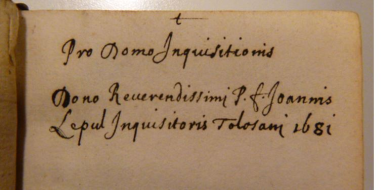 Pro Domo Inquisitionis
Dono Reverendissimi P. f. Joannis
Lepul Inquisitoris Tolosani 1681